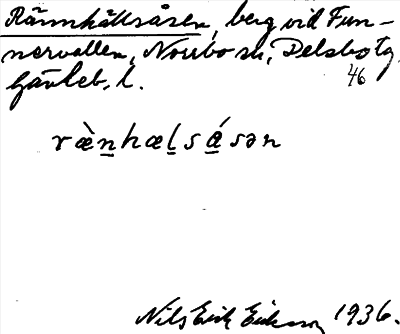 Rännhällsåsen, berg vid Fun-
nervallen, Norrbo sn, Delsbo tg
Gävleb. l. 46
ræ̀n̲hæl̲sá̲sən
Nils Erik Eriksson 1936.